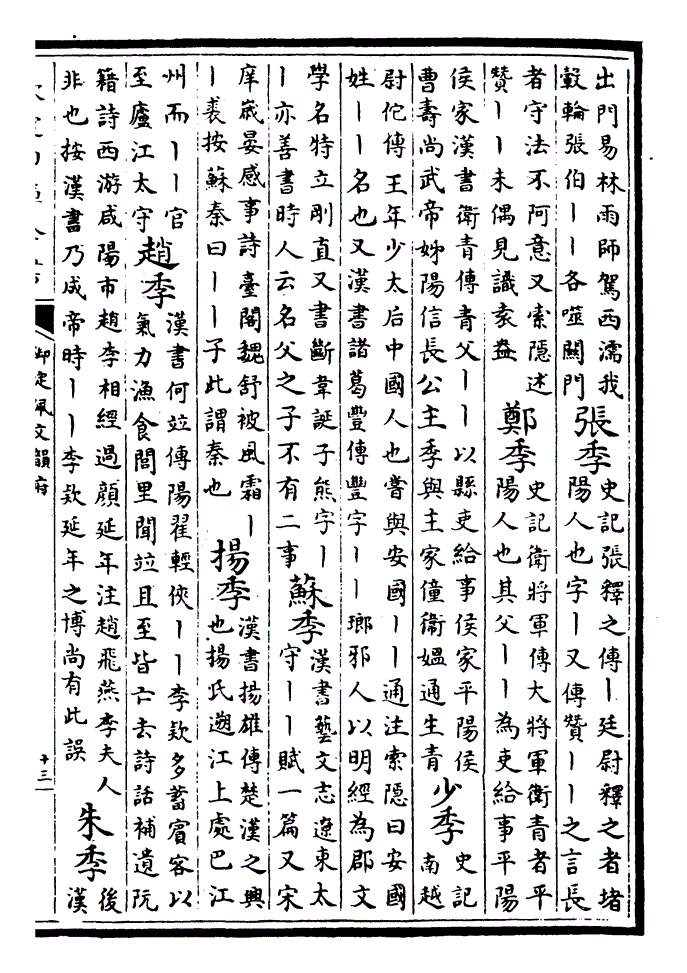 出門易林雨師駕西濡我
轂輪張伯丨丨各噬闢門
張季
史記張釋之傳丨廷尉釋之者堵
陽人也字丨又傳贊丨丨之言長
者守法不阿意又索隱述
贊丨丨未偶見識袁盎
鄭季
史記衛將軍傳大將軍衛青者平
陽人也其父丨丨為吏給事平陽
侯家漢書衛青傳青父丨丨以縣吏給事侯家平陽侯
曹壽尚武帝姊陽信長公主季與主家僮衞媼通生青
少季
史記
南越
尉佗傳王年少太后中國人也嘗與安國丨丨通注索隱曰安國
姓丨丨名也又漢書諸葛豐傳豐字丨丨瑯邪人以明經為郡文
學名特立剛直又書斷韋誕子熊字丨
丨亦善書時人云名父之子不有二事
蘇季
漢書藝文志遼東太
守丨丨賦一篇又宋
庠嵗晏感事詩臺閣魏舒被風霜丨
丨裘按蘇秦曰丨丨子此謂秦也
揚季
漢書揚雄傳楚漢之興
也揚氏遡江上處巴江
州而丨丨官
至廬江太守
趙季
漢書何竝傳陽翟輕俠丨丨李欵多蓄賓客以
氣力漁食閭里聞竝且至皆亡去詩話補遺阮
籍詩西游咸陽市趙李相經過顔延年注趙飛燕李夫人
非也按漢書乃成帝時丨丨李欵延年之博尚有此誤
朱季
後
漢
御定佩文韻府
十三